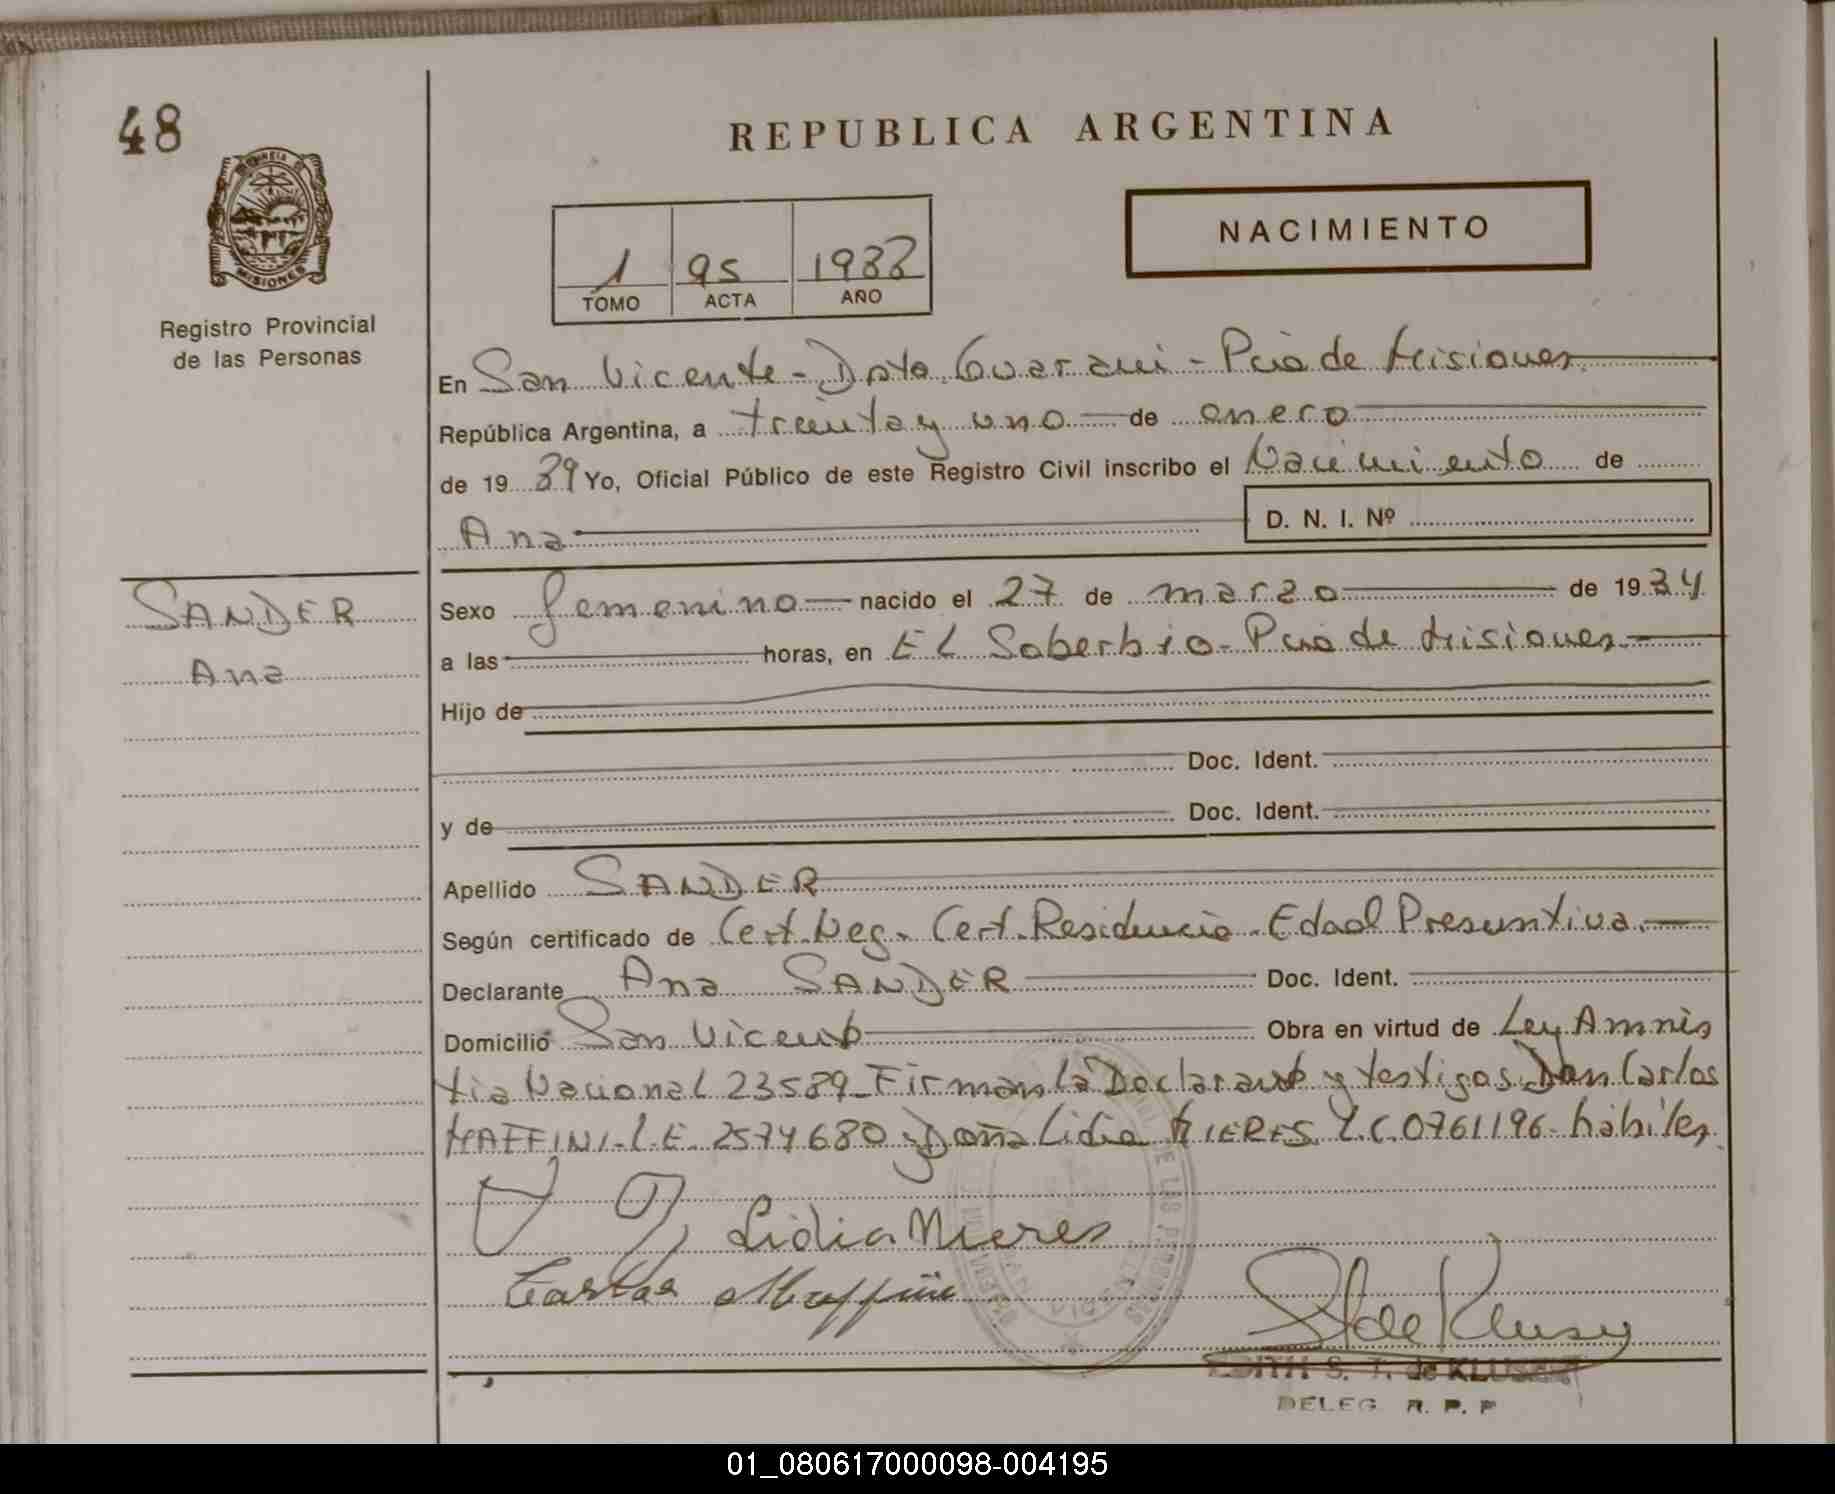 48
REPUBLICA ARGENTINA
PROVINCIA DE
MISIONES
Registro Provincial
de las Personas
1 95 1988
TOMO ACTA AÑO
NACIMIENTO
En San Vicente - Dpto. Guarani - Pcia de Misiones
República Argentina, a treinta y uno de enero
de 19 89 Yo, Oficial Público de este Registro Civil inscribo el Nacimiento de
Ana D. N. I. Nº
SANDER
Ana
Sexo femenino nacido el 27 de marzo de 19 34
a las horas, en EL Soberbio - Pcia de Misiones
Hijo de
Doc. Ident.
y de Doc. Ident.
Apellido SANDER
Según certificado de Cert. Neg. - Cert. Residencia - Edad Presuntiva.
Declarante Ana SANDER Doc. Ident.
Domicilio San Vicente Obra en virtud de Ley Amnis
tia Nacional 23589 - Firman la Declarante y testigos Don Carlos
MAFFINI - L.E. 2574680 y Doña Lidia MIERES L.C. 0761196 - hábiles
Lidia Mieres
Carlos Maffini
S T de Klusy
EDITH S. T. de KLUS
DELEG. R. P. P
01_080617000098-004195